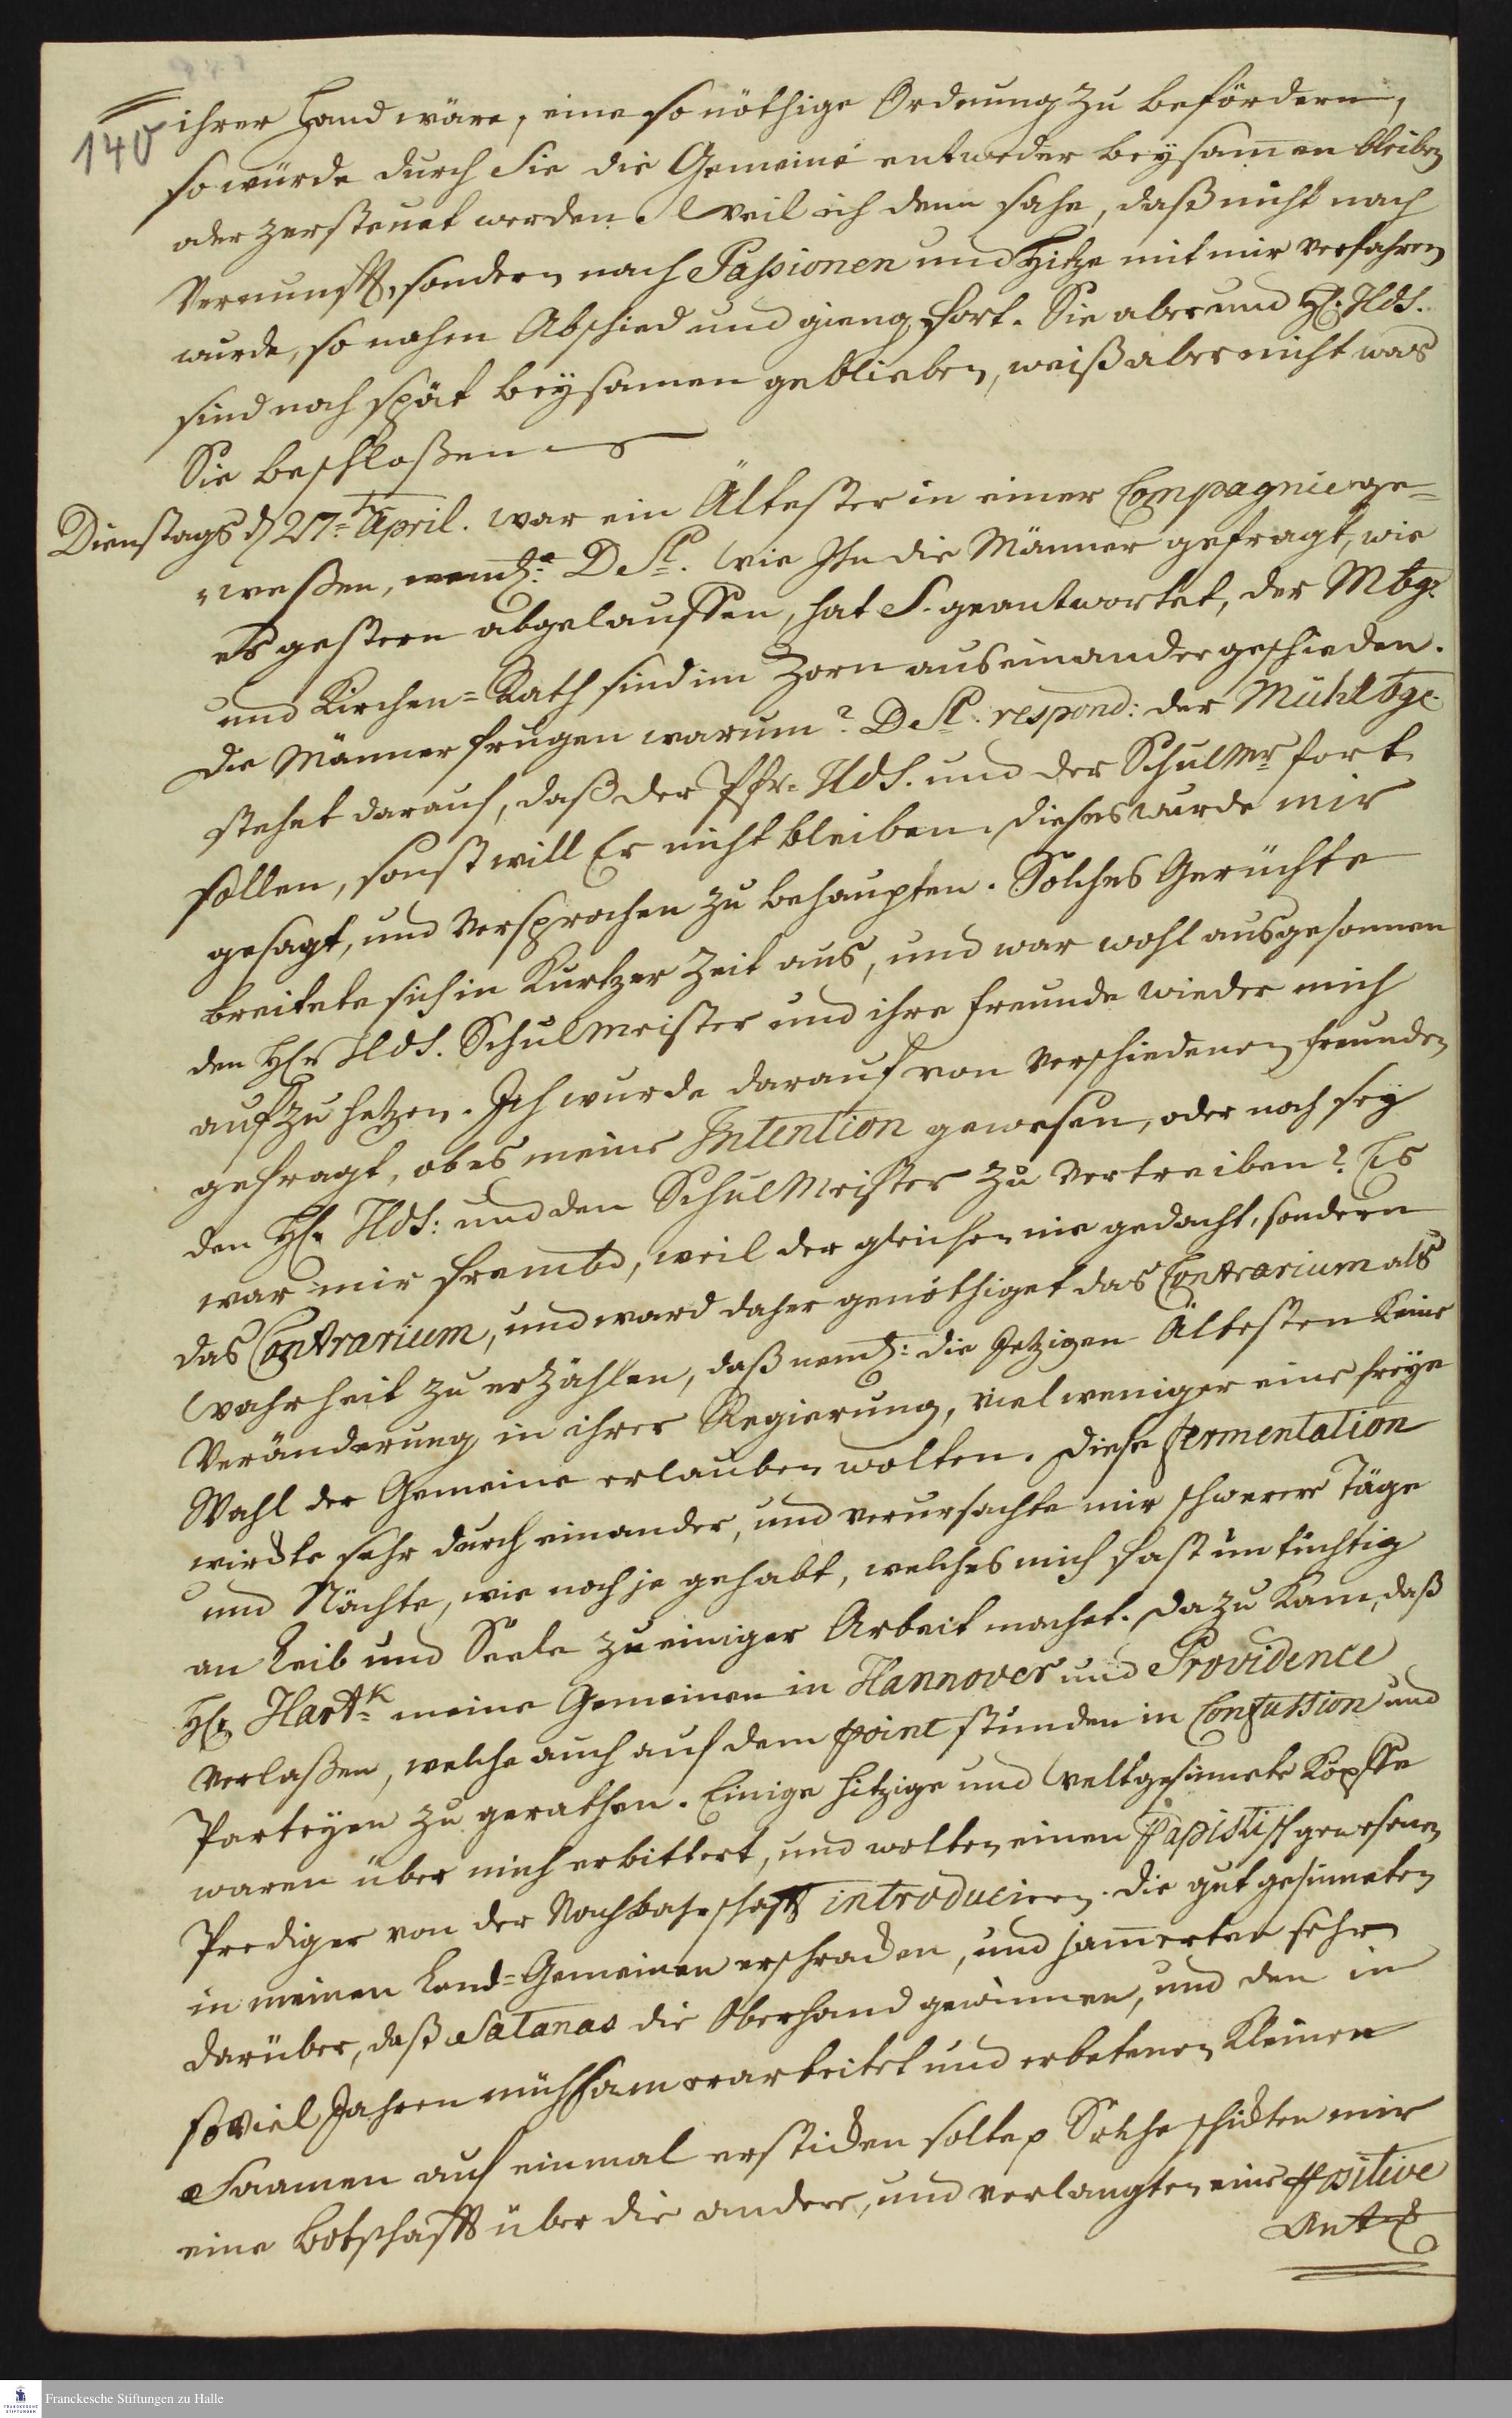 140
ihrer Hand wäre, eine so nöthige Ordnung zu befördern,
so würde durch Sie die Gemeine entweder beysamen bleiben
oder zerstreuet werden. Weil ich denn sahe, daß nicht nach
Vernunfft, sondern nach Passionen und Hitze mit mir verfahren
wurde, so nahm Abschied und gieng fort. Sie aber und H. Hds.
sind noch spät beysamen geblieben, weiß aber nicht was
Sie beschloßen
Dienstags d 27ten April. war ein Ältester in einer Compagnie ge=
weßen, neml: D Sl. Wie Ihn die Männer gefragt, wie
es gestern abgelauffen, hat S. geantwortet, der Mbg:
und Kirchen=Rath sind im Zorn auseinander geschieden.
Die Männer frugen warum? D Sl. respond: der Mühlbge.
stehet darauf, daß der Pfr. Hds. und der Schulmr fort
sollen, sonst will Er nicht bleiben, dieses wurde mir
gesagt, und versprochen zu behaupten. Solches Gerüchte
breitete sich in Kurtzer Zeit aus, und war wohl ausgesonnen
den H. Hds. Schulmeister und ihre Freunde wieder mich
aufzuhetzen. Ich wurde darauf von verschiedenen Freunden
gefragt, ob es meine Intention gewesen, oder noch sey
den H. Hds: und den Schulmeister zu vertreiben? Es
war mir frembd, weil dergleichen nie gedacht, sondern
das Contrarium, und ward daher genöthiget das Contrarium als
Wahrheit zu erzählen, daß neml: die Jetzigen Ältesten keine
Veränderung in ihrer Regierung, viel weniger eine freye
Wahl der Gemeine erlauben wolten. Diese fermentation
wirckte sehr durch einander, und verursachte mir schwerere Täge
und Nächte, wie noch je gehabt, welches mich fast untüchtig
an Leib und Seele zu einiger Arbeit machet. Dazu kam, daß
H. Hartk. meine Gemeinen in Hannover und Providence
verlaßen, welche auch auf dem point stunden in Confussion und
Parteyen zu gerathen. Einige hitzige und Weltgesinnete Köpffe
waren über mich erbittert, und wolten einen Papistisch gewesenen
Prediger von der Nachbahrschafft introduciren. Die gut gesinneten
in meinen Land=Gemeinen erschracken, und jamerten sehr
darüber, daß Satanas die Oberhand gewinnen, und den in
so viel Jahren mühsam erarbeitet und erbetenen Kleinen
Saamen auf einmal ersticken solte. Solche schickten mir
eine Botschafft über die andere, und verlangten eine positive
Antw
Franckesche Stiftungen zu Halle